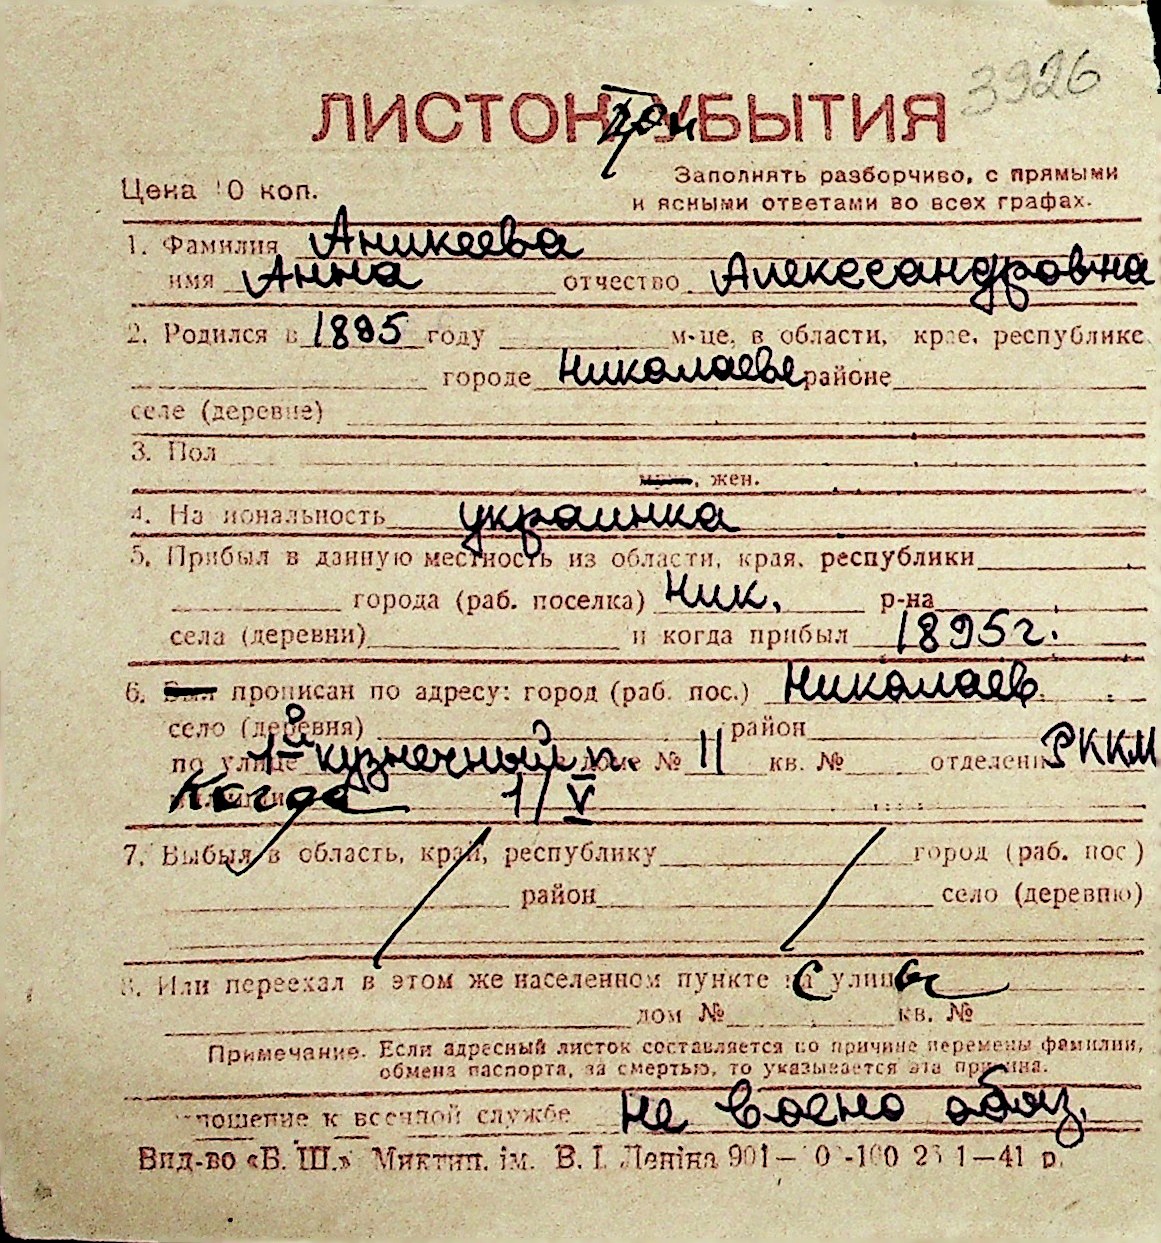 3926
ЛИСТОК УБЫТИЯ
Цена 10 коп.
Заполнять разборчиво, с прямыми
и ясными ответами во всех графах.
1. Фамилия Аникеева
имя Анна отчество Александровна
2. Родился в 1895 году м-це, в области, крае, республике
городе Николаеве районе
селе (деревне)
3. Пол
муж., жен.
4. Национальность украинка
5. Прибыл в данную местность из области, края, республики
города (раб. поселка) Ник. р-на
села (деревни) и когда прибыл 1895г.
6. Был прописан по адресу: город (раб. пос.) Николаев.
село (деревня) район
по улице 1й кузнечный п. доме № 11 кв. № отделени РККМ
милиции Когда 1/V
7. Выбыл в область, край, республику город (раб. пос)
район село (деревню)
8. Или переехал в этом же населенном пункте на с улицы
дом № кв. №
Примечание. Если адресный листок составляется по причине перемены фамилии,
обмена паспорта, за смертью, то указывается эта причина.
тношение к военной службе не военно обяз.
Вид-во «Б. Ш.» Миктип. ім. В. І. Леніна 901— 1—41 р.